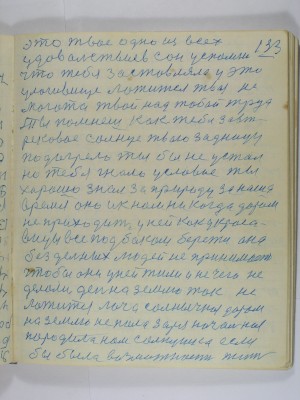 это твое одно из всех 133
удовольствиев сон успоми
что тебя заставляло у это
ложится ты не
могила твой над тобой труд
ты помнеш как тебя завт-
рековое солнце твою задницу
подогрело ты бы не устал
но тебя гнало условие ты
хорошо знал за природу за наша
время оно и к нам никогда даром
не приходит, у ней как у краса-
вицы все под боком береги она
бездельных людей не принимает
чтобы они у ней жили и ничего не
делали день на землю так не
ложится луча солнечная даром
на землю не пала заря начальная
породила нам солнушка если
бы была возможность